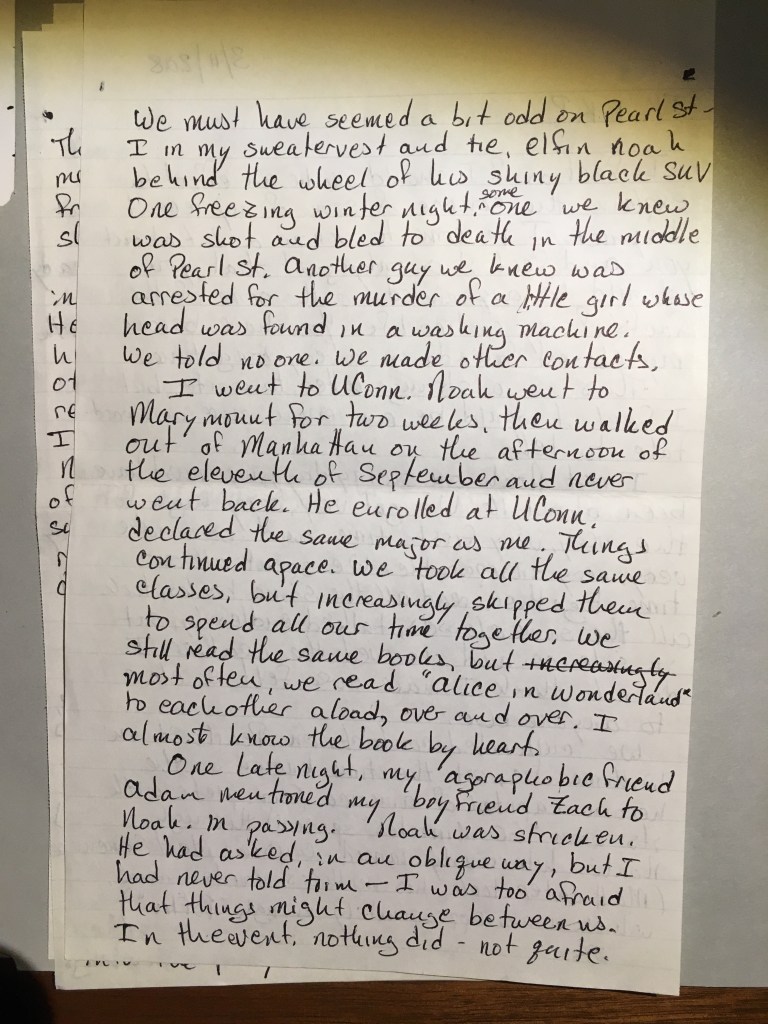 3/11/208
We must have seemed a bit odd on Pearl St -
I in my sweatervest and tie, elfin noah
behind the wheel of his shiny black SUV
One freezing winter night, some one we knew
was shot and bled to death in the middle
of Pearl St. Another guy we knew was
arrested for the murder of a little girl whose
head was found in a washing machine.
We told no one. We made other contacts.
I went to UConn. Noah went to
Marymount for two weeks, then walked
out of Manhattan on the afternoon of
the eleventh of September and never
went back. He enrolled at UConn,
declared the same major as me. Things
continued apace. We took all the same
classes, but increasingly skipped them
to spend all our time together. We
still read the same books, but increasingly
most often, we read "Alice in Wonderland"
to eachother aload, over and over. I
almost know the book by heart.
One late night, my agoraphobic friend
Adam mentioned my boyfriend Zach to
Noah. In passing. Noah was stricken.
He had asked, in an oblique way, but I
had never told him — I was too afraid
that things might change between us.
In the event, nothing did - not quite.
Th
me
fr
sl
in
He
h
ot
re
I
n
of